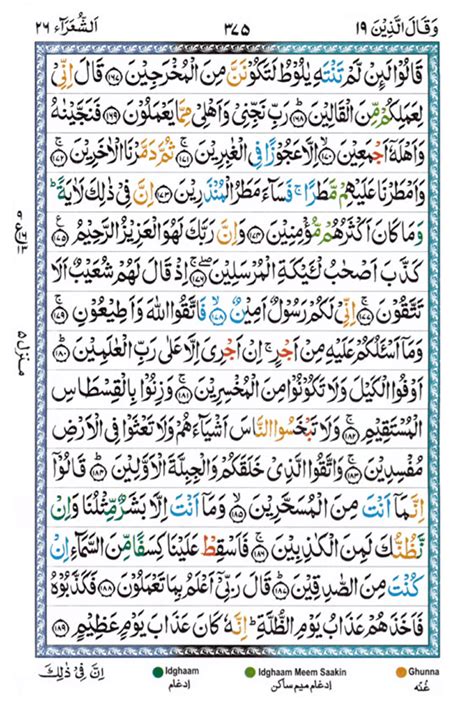 وَقَالَ الَّذِيْنَ ١٩ ٣٧٥ اَلشُّعَرَآء ٢٦
قَالُوْا لَىِٕنْ لَّمْ تَنْتَهِ يٰلُوْطُ لَتَكُوْنَنَّ مِنَ الْمُخْرَجِيْنَ ﴿١٦٧﴾ قَالَ اِنِّيْ
لِعَمَلِكُمْ مِّنَ الْقَالِيْنَ ﴿١٦٨﴾ رَبِّ نَجِّنِيْ وَاَهْلِيْ مِمَّا يَعْمَلُوْنَ ﴿١٦٩﴾ فَنَجَّيْنٰهُ
وَاَهْلَهٗٓ اَجْمَعِيْنَ ﴿١٧٠﴾ اِلَّا عَجُوْزًا فِي الْغٰبِرِيْنَ ﴿١٧١﴾ ثُمَّ دَمَّرْنَا الْاٰخَرِيْنَ ﴿١٧٢﴾
وَاَمْطَرْنَا عَلَيْهِمْ مَّطَرًا ۚ فَسَآءَ مَطَرُ الْمُنْذَرِيْنَ ﴿١٧٣﴾ اِنَّ فِيْ ذٰلِكَ لَاٰيَةً ؕ
وَمَا كَانَ اَكْثَرُهُمْ مُّؤْمِنِيْنَ ﴿١٧٤﴾ وَاِنَّ رَبَّكَ لَهُوَ الْعَزِيْزُ الرَّحِيْمُ ﴿١٧٥﴾
كَذَّبَ اَصْحٰبُ لْـَٔيْكَةِ الْمُرْسَلِيْنَ ﴿١٧٦﴾ اِذْ قَالَ لَهُمْ شُعَيْبٌ اَلَا
تَتَّقُوْنَ ﴿١٧٧﴾ اِنِّيْ لَكُمْ رَسُوْلٌ اَمِيْنٌ ﴿١٧٨﴾ فَاتَّقُوا اللّٰهَ وَاَطِيْعُوْنِ ﴿١٧٩﴾
وَمَآ اَسْـَٔلُكُمْ عَلَيْهِ مِنْ اَجْرٍ ۚ اِنْ اَجْرِيَ اِلَّا عَلٰى رَبِّ الْعٰلَمِيْنَ ﴿١٨٠﴾
اَوْفُوا الْكَيْلَ وَلَا تَكُوْنُوْا مِنَ الْمُخْسِرِيْنَ ﴿١٨١﴾ وَزِنُوْا بِالْقِسْطَاسِ
الْمُسْتَقِيْمِ ﴿١٨٢﴾ وَلَا تَبْخَسُوا النَّاسَ اَشْيَآءَهُمْ وَلَا تَعْثَوْا فِي الْاَرْضِ
مُفْسِدِيْنَ ﴿١٨٣﴾ وَاتَّقُوا الَّذِيْ خَلَقَكُمْ وَالْجِبِلَّةَ الْاَوَّلِيْنَ ﴿١٨٤﴾ قَالُوْٓا
اِنَّمَآ اَنْتَ مِنَ الْمُسَحَّرِيْنَ ﴿١٨٥﴾ وَمَآ اَنْتَ اِلَّا بَشَرٌ مِّثْلُنَا وَاِنْ
نَّظُنُّكَ لَمِنَ الْكٰذِبِيْنَ ﴿١٨٦﴾ فَاَسْقِطْ عَلَيْنَا كِسَفًا مِّنَ السَّمَآءِ اِنْ
كُنْتَ مِنَ الصّٰدِقِيْنَ ﴿١٨٧﴾ قَالَ رَبِّيْٓ اَعْلَمُ بِمَا تَعْمَلُوْنَ ﴿١٨٨﴾ فَكَذَّبُوْهُ
فَاَخَذَهُمْ عَذَابُ يَوْمِ الظُّلَّةِ ؕ اِنَّهٗ كَانَ عَذَابَ يَوْمٍ عَظِيْمٍ ﴿١٨٩﴾
منزل ٥
اِنَّ فِيْ ذٰلِكَ
Idghaam
ادغام
Idghaam Meem Saakin
ادغام میم ساکن
Ghunna
غُنّه